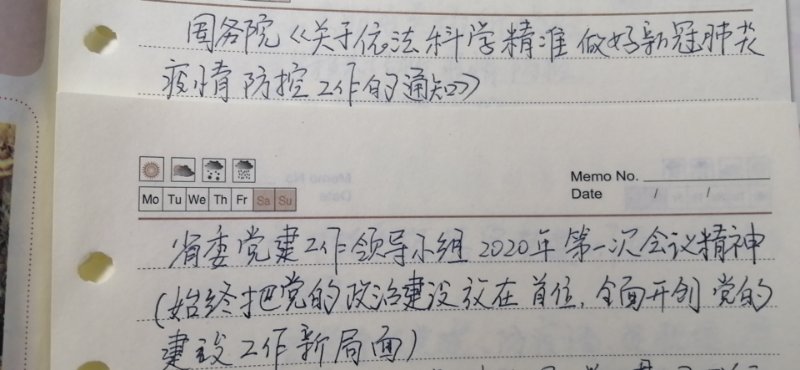 国务院《关于依法科学精准做好新冠肺炎
疫情防控工作的通知》
Memo No.
Mo Tu We Th Fr Sa Su
Date / /
省委党建工作领导小组2020年第一次会议精神
(始终把党的政治建设放在首位,全面开创党的
建设工作新局面)